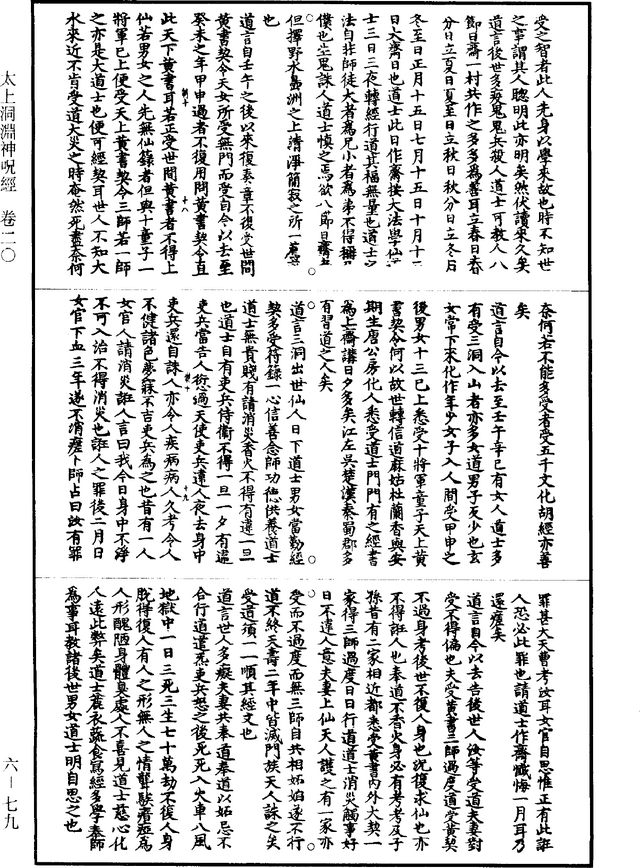 受之智者此人先身以學來故也時不知世
之事謂其人聰明此亦明矣然伏讀來久矣
道言後世多疫鬼鬼兵殺人道士可教人八
節日齋一村共作之多多為善耳立春日春
分日立夏日夏至日立秋日秋分日立冬日
冬至日正月十五日七月十五日十月十五
日大齋日也道士此日作齋接大法學仙道
士三日三夜轉經行道其福無量也道士夕
法自非師徒大者為兄小者為弟不得
僕也立鬼誅人道士慎之焉欲八節日齋者
但擇野水量洲之上清淨簡寂之所一
也
道言自壬午之後以來復奏章不復受世間
黃書契令天女所受無門而受自今以去至
癸未之年甲申過者不復用問黃書契令直
此天下黃書耳若正受世間黃書者不得上
仙若男女之人先無仙錄者但與十童子一
將軍已上便受天上黃書契令三師若一師
之亦是大道士也便可經契耳世人不知大
水來近不肯受道大災之時奄然死盡奈何
奈何若不能多受者受五千文化胡經亦善
矣
道言自今以去至壬午辛巳有女人道士多
有受三洞入山者亦多女道男子反少也玄
女常下來化作年少女子入人間受甲申之
後男女十三已上悉受十將軍童子天上黃
書契令何以故世轉信道麻姑杜蘭香與安
期生唐公房化人悉受道士門門有之經書
為上齋講日夕多矣江左吳楚漢秦蜀郡多
有習道之人矣
道言三洞出世仙人日下道士男女當勤經
契多受符錄一心信善念師功德供養道士
道士無貴賤有請消災香火不得有違一旦
也道士自有吏兵侍衛不得一旦一夕有違
吏兵當告人後過天使吏兵違人夜去身中
吏兵還自誅人亦令人疾病病人久考令人
不健諸色夢寐不吉吏兵為之也昔有一人
女官人請消災誑人言曰我今日身中不淨
不可入治不得消災也誑人之罪後二月日
女官下血三年遂不消瘥卜師占曰汝有罪
罪甚大天曹考汝耳女官自思惟正有此誑
人恐必此罪也請道士作齋懺悔一月耳乃
還瘥矣
道言自今以去告後世人汝等受道夫妻對
受不得偏也夫受黃書三師過度道堂黃契
不過身考後世不復人身也況復求仙也亦
不得誑人也奉道不香火身必有考考及子
孫昔有二家相近都悉受黃書內外大契一
家得三師過度日日行道道士消災觸事好
日不違人意夫妻上仙天人護之有一家亦
受而不過度而無三師自共相妬姤遂不行
道不終天壽二年中皆滅門族天人誅之矣
受道須一一順其經文也
道言世人多癡夫妻共奉道奉道以妬忌不
合行道道炁吏兵怒之後死死入火車八風
地獄中一日三死三生七十萬劫不復人身
脫得復人有人之形無人之情聾騃瘖瘂為
人形醜陋身體臭處人不喜見道士慈心化
人遠此弊矣道士麁衣蔬食寫經多學奉師
為事耳教諸後世男女道士明自思之也
太上洞淵神呪經 卷二〇
六－七九